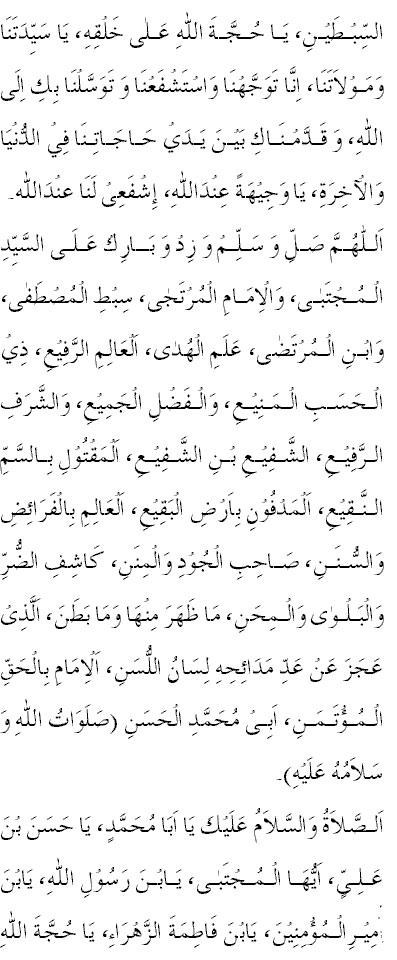 السِّبْطَيْنِ، يَا حُجَّةَ اللهِ عَلٰى خَلْقِهِ، يَا سَيِّدَتَنَا
وَمَوْلَاتَنَا، اِنَّا تَوَجَّهْنَا وَاسْتَشْفَعْنَا وَ تَوَسَّلْنَا بِكِ اِلَى
اللهِ، وَ قَدَّمْنَاكِ بَيْنَ يَدَيْ حَاجَاتِنَا فِيْ الدُّنْيَا
وَالْآخِرَةِ، يَا وَجِيْهَةً عِنْدَاللهِ، اِشْفَعِىْ لَنَا عِنْدَالله۔
اَللّٰهُمَّ صَلِّ وَ سَلِّمْ وَ زِدْ وَ بَارِكْ عَلَى السَّيِّدِ
الْمُجْتَبٰى، وَالْاِمَامِ الْمُرْتَجٰى، سِبْطِ الْمُصْطَفٰى،
وَابْنِ الْمُرْتَضٰى، عَلَمِ الْهُدٰى، اَلْعَالِمِ الرَّفِيْعِ، ذِيْ
الْحَسَبِ الْمَنِيْعِ، وَالْفَضْلِ الْجَمِيْعِ، وَالشَّرَفِ
الرَّفِيْعِ، الشَّفِيْعِ بْنِ الشَّفِيْعِ، اَلْمَقْتُوْلِ بِالسَّمِّ
النَّقِيْعِ، اَلْمَدْفُوْنِ بِاَرْضِ الْبَقِيْعِ، اَلْعَالِمِ بِالْفَرَائِضِ
وَالسُّنَنِ، صَاحِبِ الْجُوْدِ وَالْمِنَنِ، كَاشِفِ الضُّرِّ
وَالْبَلْوٰى وَالْمِحَنِ، مَا ظَهَرَ مِنْهَا وَمَا بَطَنَ، اَلَّذِىْ
عَجَزَ عَنْ عَدِّ مَدَائِحِهِ لِسَانُ اللُّسَنِ، اَلْاِمَامِ بِالْحَقِّ
الْمُؤْتَمَنِ، اَبِىْ مُحَمَّدِ الْحَسَنِ (صَلَوَاتُ اللهِ وَ
سَلَامُهُ عَلَيْهِ)۔
اَلصَّلَاةُ وَالسَّلَامُ عَلَيْكَ يَا اَبَا مُحَمَّدٍ، يَا حَسَنَ بْنَ
عَلِيٍّ، اَيُّهَا الْمُجْتَبٰى، يَابْنَ رَسُوْلِ اللهِ، يَابْنَ
مِيْرِالْمُؤْمِنِيْنَ، يَابْنَ فَاطِمَةَ الزَّهْرَاءِ، يَا حُجَّةَ اللهِ